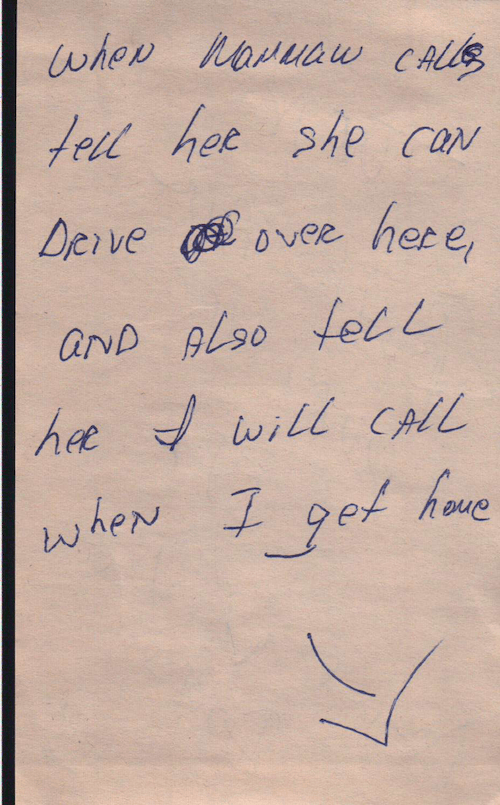 WHEN MAMMAW CALLS
tell heR she CAN
DRive oveR heRe,
AND ALso tell
heR I will CALL
wheN I get home